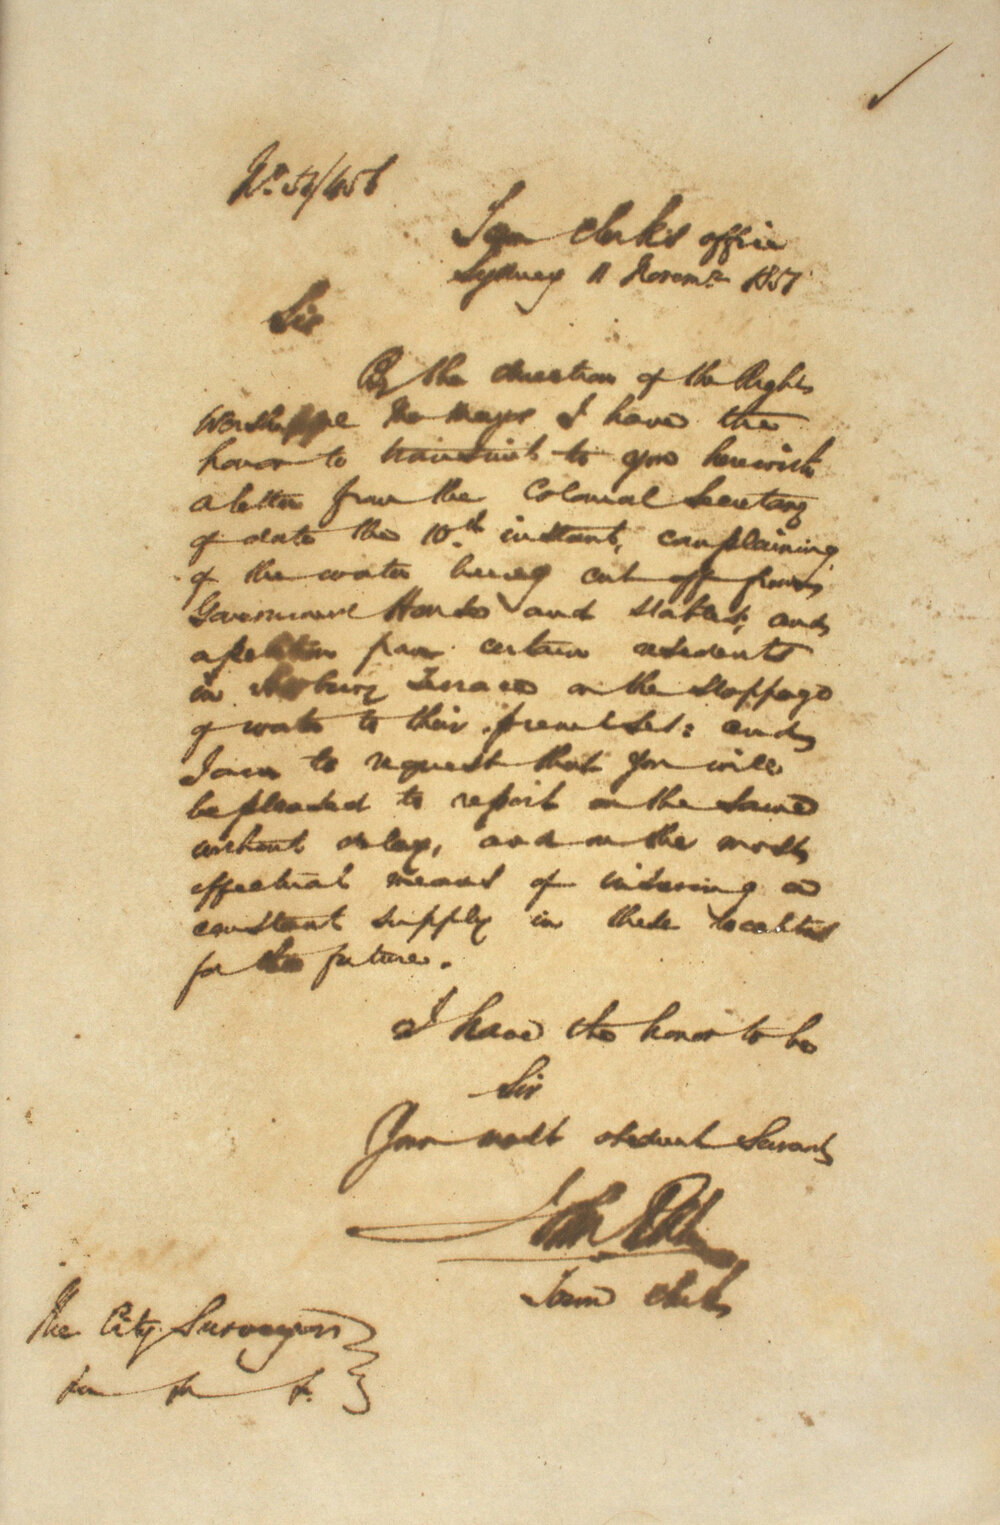 Town Clerk's office
Sydney 11 Novemr. 1857
Sir
By the direction of the Right
Worshipful the Mayor I have the
honor to transmit to you herewith
a letter from the Colonial Secretary
of date the 10th instant, complaining
of the water being cut off from
Government House and Stables, and
a petition from certain residents
in Terrace on the stoppage
of water to their premises: and
I am to request that you will
be pleased to report on the same
without delay, and on the most
effectual means of insuring a
constant supply in these localities
for the future.
I have the honor to be
Sir
Your most obedient Servant
John
Town Clerk
The City Surveyor